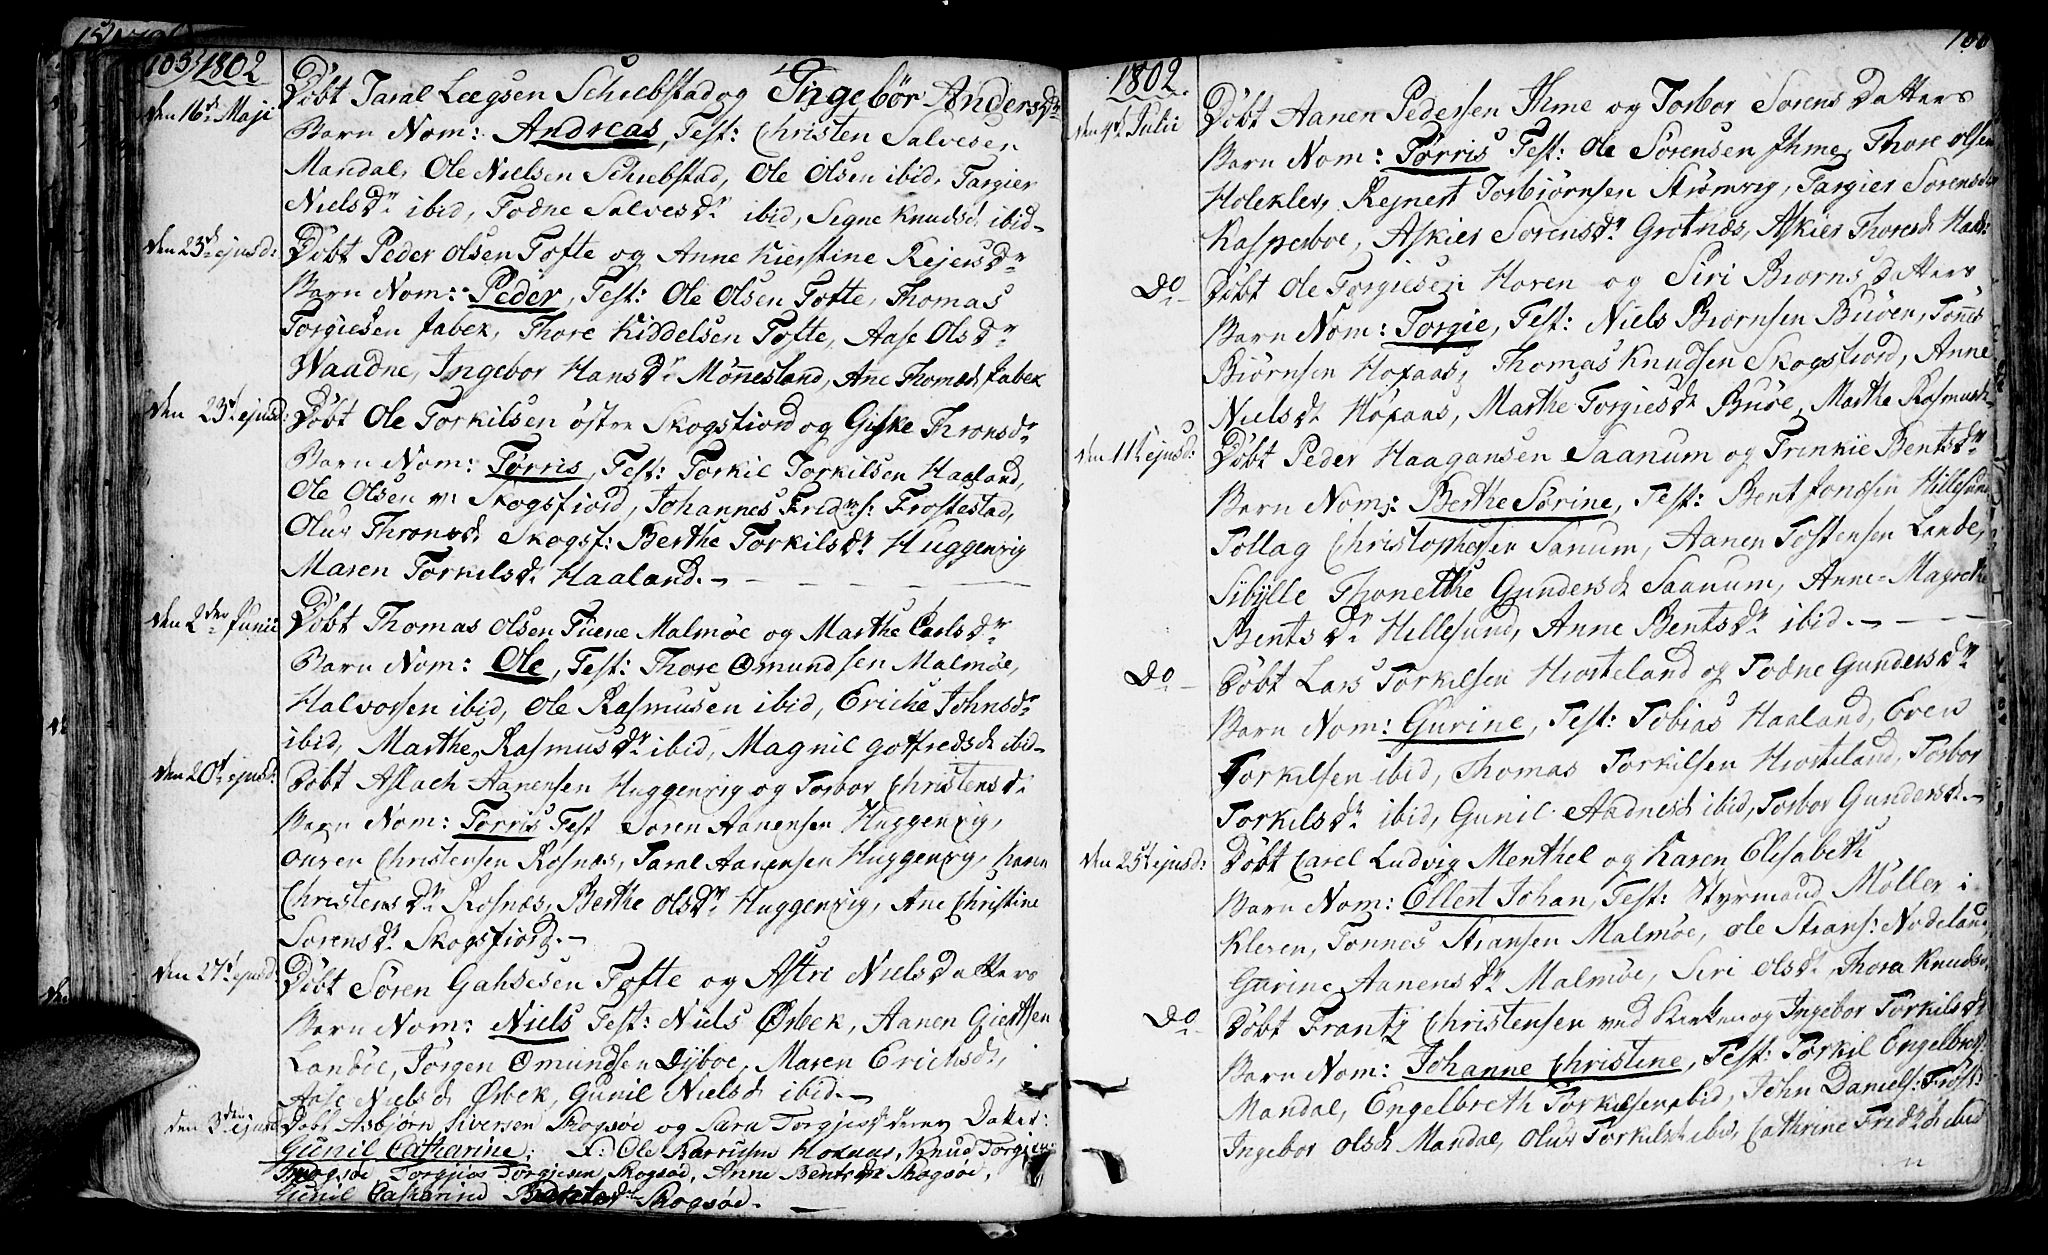 105/1802
den 16d Maji Døbt Taral Leegsen Schiebstad og Ingebør Andersdr
Barn Nom: Andreas, Test: Christen Salvesen
Mandal, Ole Nielsen Schiebstad, Ole Olsen ibid, Targier
Niels Dr ibid, Todne Salves Dr ibid, Segne Knudsd ibid
den 23d ejusd: Døbt Peder Olsen Tofte og Anne Kierstine Rejersdr
Barn Nom: Peder, Test: Ole Olsen Tofte, Thomas
Torgiesen Jabek, Thore Kiddelsen Tofte, Aase Ols Dr
Waadne, Ingebor Hans Dr Mönnesland, Ane Thomæd Jabek
den 23d ejusd: Døbt Ole Torkilsen östre Skogsfiord og Giske Thronsdr
Barn Nom: Torris, Test: Torkil Torkilsen Haaland,
Ole Olsen v: Skogsfiord, Johannes Fridrs: Frostestad,
Olus Thronsd Skogsf: Berthe Torkils Dr Huggenvig
Maren Torkils Dr Haaland. —
den 2den Junii Døbt Thomas Olsen Tuene Malmøe og Marthe Carls Dr
Barn Nom: Ole, Test: Thore Omundsen Malmøe,
Halvorsen ibid, Ole Rasmusen ibid, Eriche Johnsdr
ibid, Marthe Rasmus Dr ibid, Magnil Gotfredsd ibid
den 20d ejusd: Døbt Aslach Aanensen Huggenvig og Torbor Christensdr
Barn Nom: Torris Test Soren Aanensen Huggenvig,
Christensen Rosnæs, Taral Aanensen Huggenvig, Karen
Christens Dr Rosnæs, Berthe Ols Dr Huggenvig, Ane Christine
Sorens Dr Skogsfiord. —
den 27d ejusd: Døbt Søren Gahsesen Tofte og Astri Niels Datters
Barn Nom: Niels Test: Niels Ørbek, Aanen Giertsen
Landøe, Jørgen Omundsen Dyboe, Maren Erichsd,
Aase Nielsd Ørbek, Gunil Nielsd ibid. —
den 3den ejusd Døbt Asbjørn Siversen Skogsøe og Sara Torgjesd deres Datter:
Gunil Catharine, F: Ole Barrusen Hoxaas, Knud Torgjes:
Skogsøe Torgjus Torgjesen Skogsøe, Anne Bentsdr Skogsøe,
Gunil Catharine Bentsdr Skogsøe. —
1802.
den 4d Julii Døbt Aanen Pedersen Ihme og Torbor Sorens Datters
Barn Nom: Torris Test: Ole Sorensen Ihme, Thore Olsen
Holekler, Rejnert Torbiørnsen Strömvig, Targier Sorensdr
Kasperboe, Askier Sorens Dr Grotnæs, Askier Thoresd Haal:
Do Døbt Ole Torgiesen Horen og Siri Biørns Datters
Barn Nom: Torgie, Test: Niels Biornsen Buöen, Tönnes
Biörnsen Höxaas, Thomas Knudsen Skogsfiord, Anne
Niels Dr Höxaas, Marthe Torgies Dr Buöe, Marthe Rasmusdr
den 11d ejusd: Døbt Peder Haagansen Saanum og Trinkie Bentsdr
Barn Nom: Berthe Sörine, Test: Bent Jonsen Hillesund
Tollag Christophersen Sanum, Aanen Tostensen Lande,
Sibÿlle Thonethe Gundersd Saanum, Anne Magrethe
Bents Dr Hillesund, Anne Bents Dr ibid. —
Do — Døbt Lars Torkilsen Hiorteland og Todne Gundersdr
Barn Nom: Gurine, Test: Tobias Haaland, Even
Torkilsen ibid, Thomas Torkilsen Hiorteland, Torbor
Torkils Dr ibid, Gunil Aadnesd ibid, Torbor Gundersdr —
den 25d ejusd: Døbt Carel Ludvig Menthel og Karen Elisabeth
Barn Nom: Ellert Johan, Test: Styrmand Möller i
Kleven, Tonnes Stransen Malmøe, Ole Strans: Nodeland
Gurine Aanens Dr Malmöe, Siri Ols Dr, Thora Knudsdr
Do — Døbt Frantz Christensen ved Kirken og Ingebor Torkilsdr
Barn Nom: Johanne Christine, Test: Torkil Engelbret:
Mandal, Engelbreth Torkilsen ibid, John Daniels: Frost:
Ingebor Olsd Mandal, Olus Torkilsd ibid, Cathrine Fridrd ibid